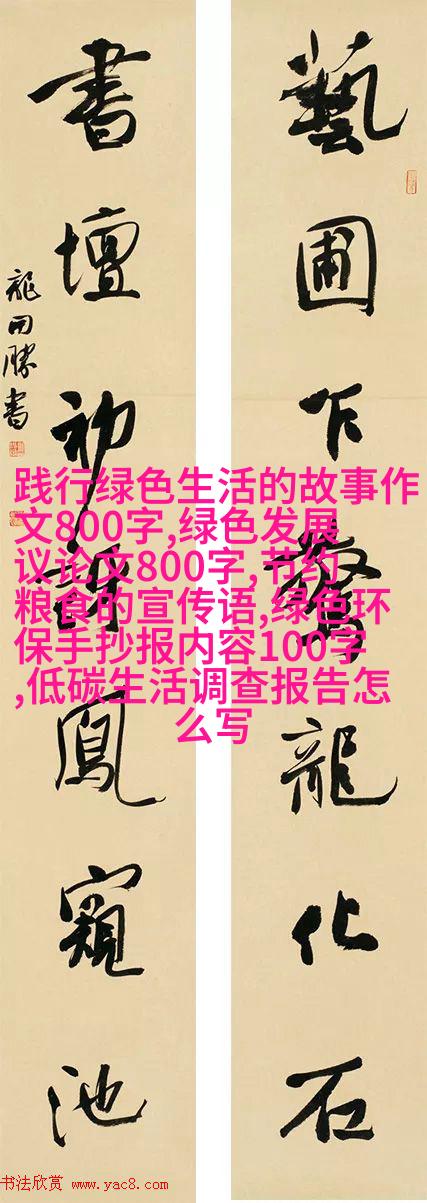 藝圃乍驚龍化石
書壇初訝鳳窺池
龍開勝書
践行绿色生活的故事作
文800字,绿色发展
议论文800字,节约
粮食的宣传语,绿色环
保手抄报内容100字
,低碳生活调查报告怎
么写
书法欣赏 www.yac8.com